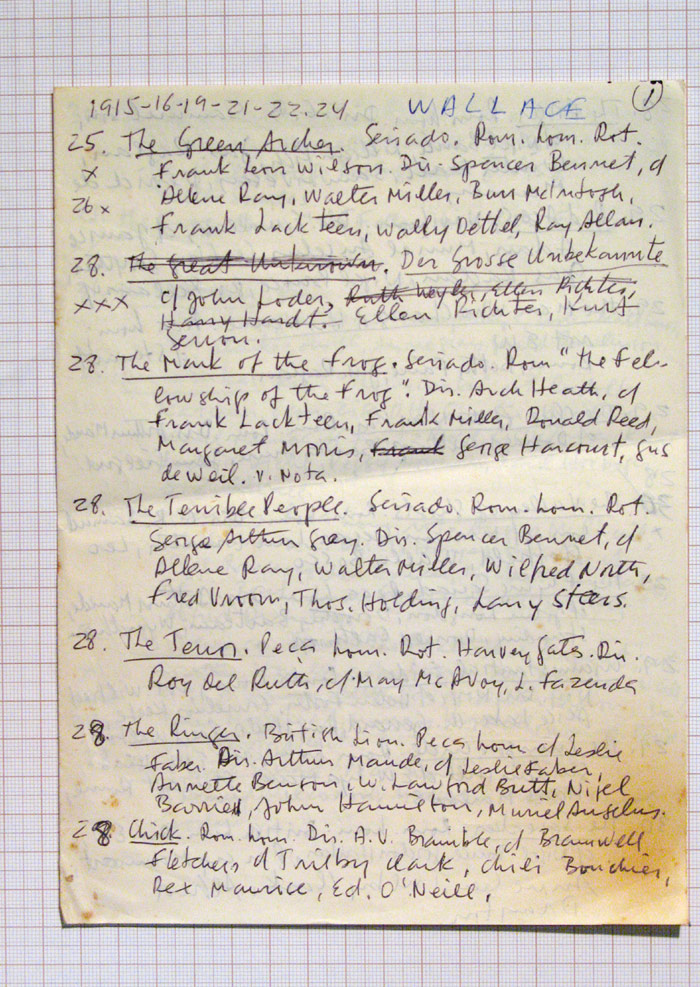 1915-16-19-21-22-24 WALLACE 1
25. The Green Archer. Seriado. Rom. hom. Rot.
x Frank Leon Wilson. Dir. Spencer Bennet, c/
26 x Allene Ray, Walter Miller, Burr McIntosh,
Frank Lackteen, Wally Dettbel, Ray Allan.
28. The Great Unknown. Der Grosse Unbekannte
xxx c/ John Loder, Ruth Weyler, Ellen Richter,
Harry Hardt. Ellen Richter, Kurt
Gerron.
28. The Mark of the Frog. Seriado. Rom "the Fel-
lowship of the Frog". Dir. Arch Heath, c/
Frank Lackteen, Frank Miller, Donald Reed,
Margaret Morris, Frank George Harcourt, Gus
de Weil. V. Nota.
28. The Terrible People. Seriado. Rom. hom. Rot.
George Arthur Gray. Dir. Spencer Bennet, c/
Allene Ray, Walter Miller, Wilfred North,
Fred Vroom, Thos. Holding, Larry Steers.
28. The Terror. Peça hom. Rot. Harvey Gates. Dir.
Roy Del Ruth, c/ May McAvoy, L. Fazenda
28. The Ringer. British Lion. Peça hom c/ Leslie
Faber. Dir. Arthur Maude, c/ Leslie Faber,
Annette Benson, W. Lawford Butt, Nigel
Barrie, John Hamilton, Muriel Angelus.
28 Chick. Rom. hom. Dir. A.V. Bramble, c/ Bramwell
Fletcher c/ Trilby Clark, Chili Bouchier,
Rex Maurice, Ed. O'Neill,